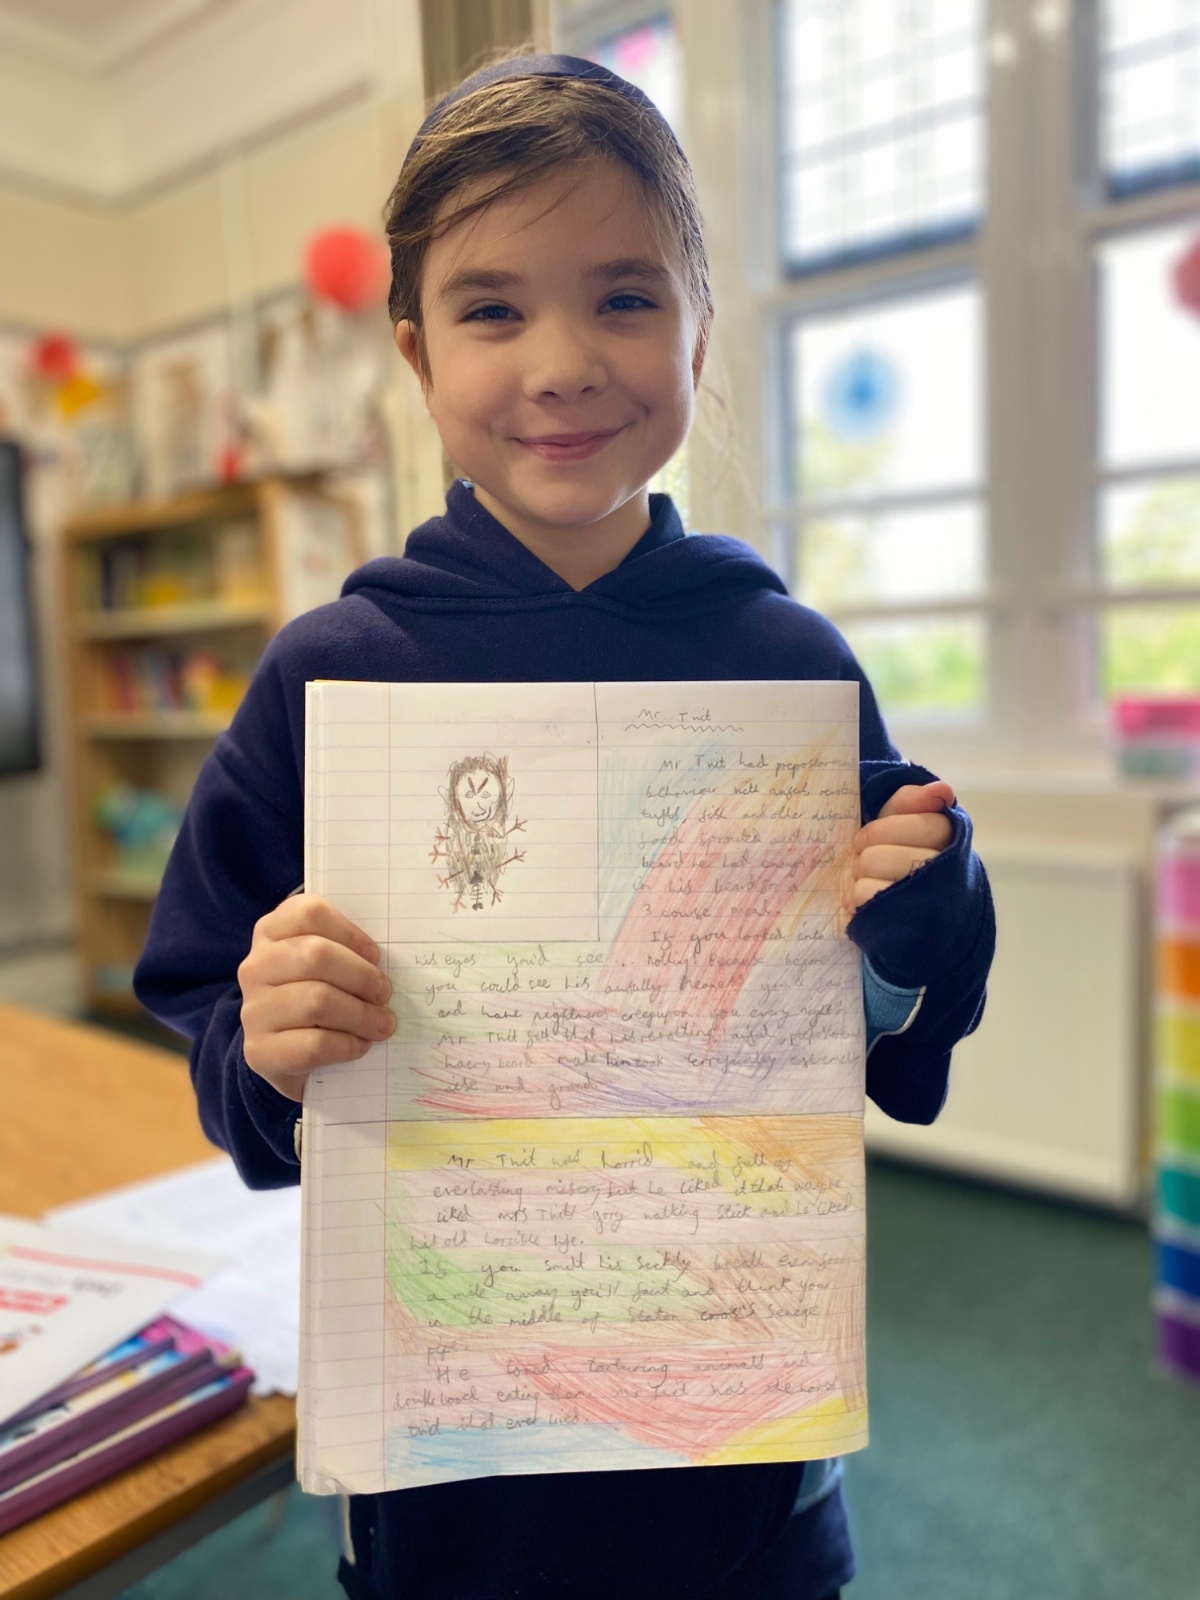 Mr Twit
Mr Twit had preposterous
behaviour with angus revolting
tufts, fish and other disgusting
food sprouted out his
beard he had enough food
in his beard for a
3 course meal.
If you looked into
his eyes you'd see... nothing! Because before
you could see his awfully you'd
and have nightmares creepupon you every night.
Mr. Twit felt that his revolting, awful, preposterous
haery beard made him look terrifically extremely
wise and grand.
Mr Twit was horrid and full of
everlasting misery but he liked it that way he
liked mrs Twits gory walking stick and he liked
his old horrible life.
If you smelt his sickly from
a mile away you'll faint and think your
in the middle of Senege
pipe.
He loved torturing animals and
double loved eating them. Mr Twit was the worst
twid that ever lived.